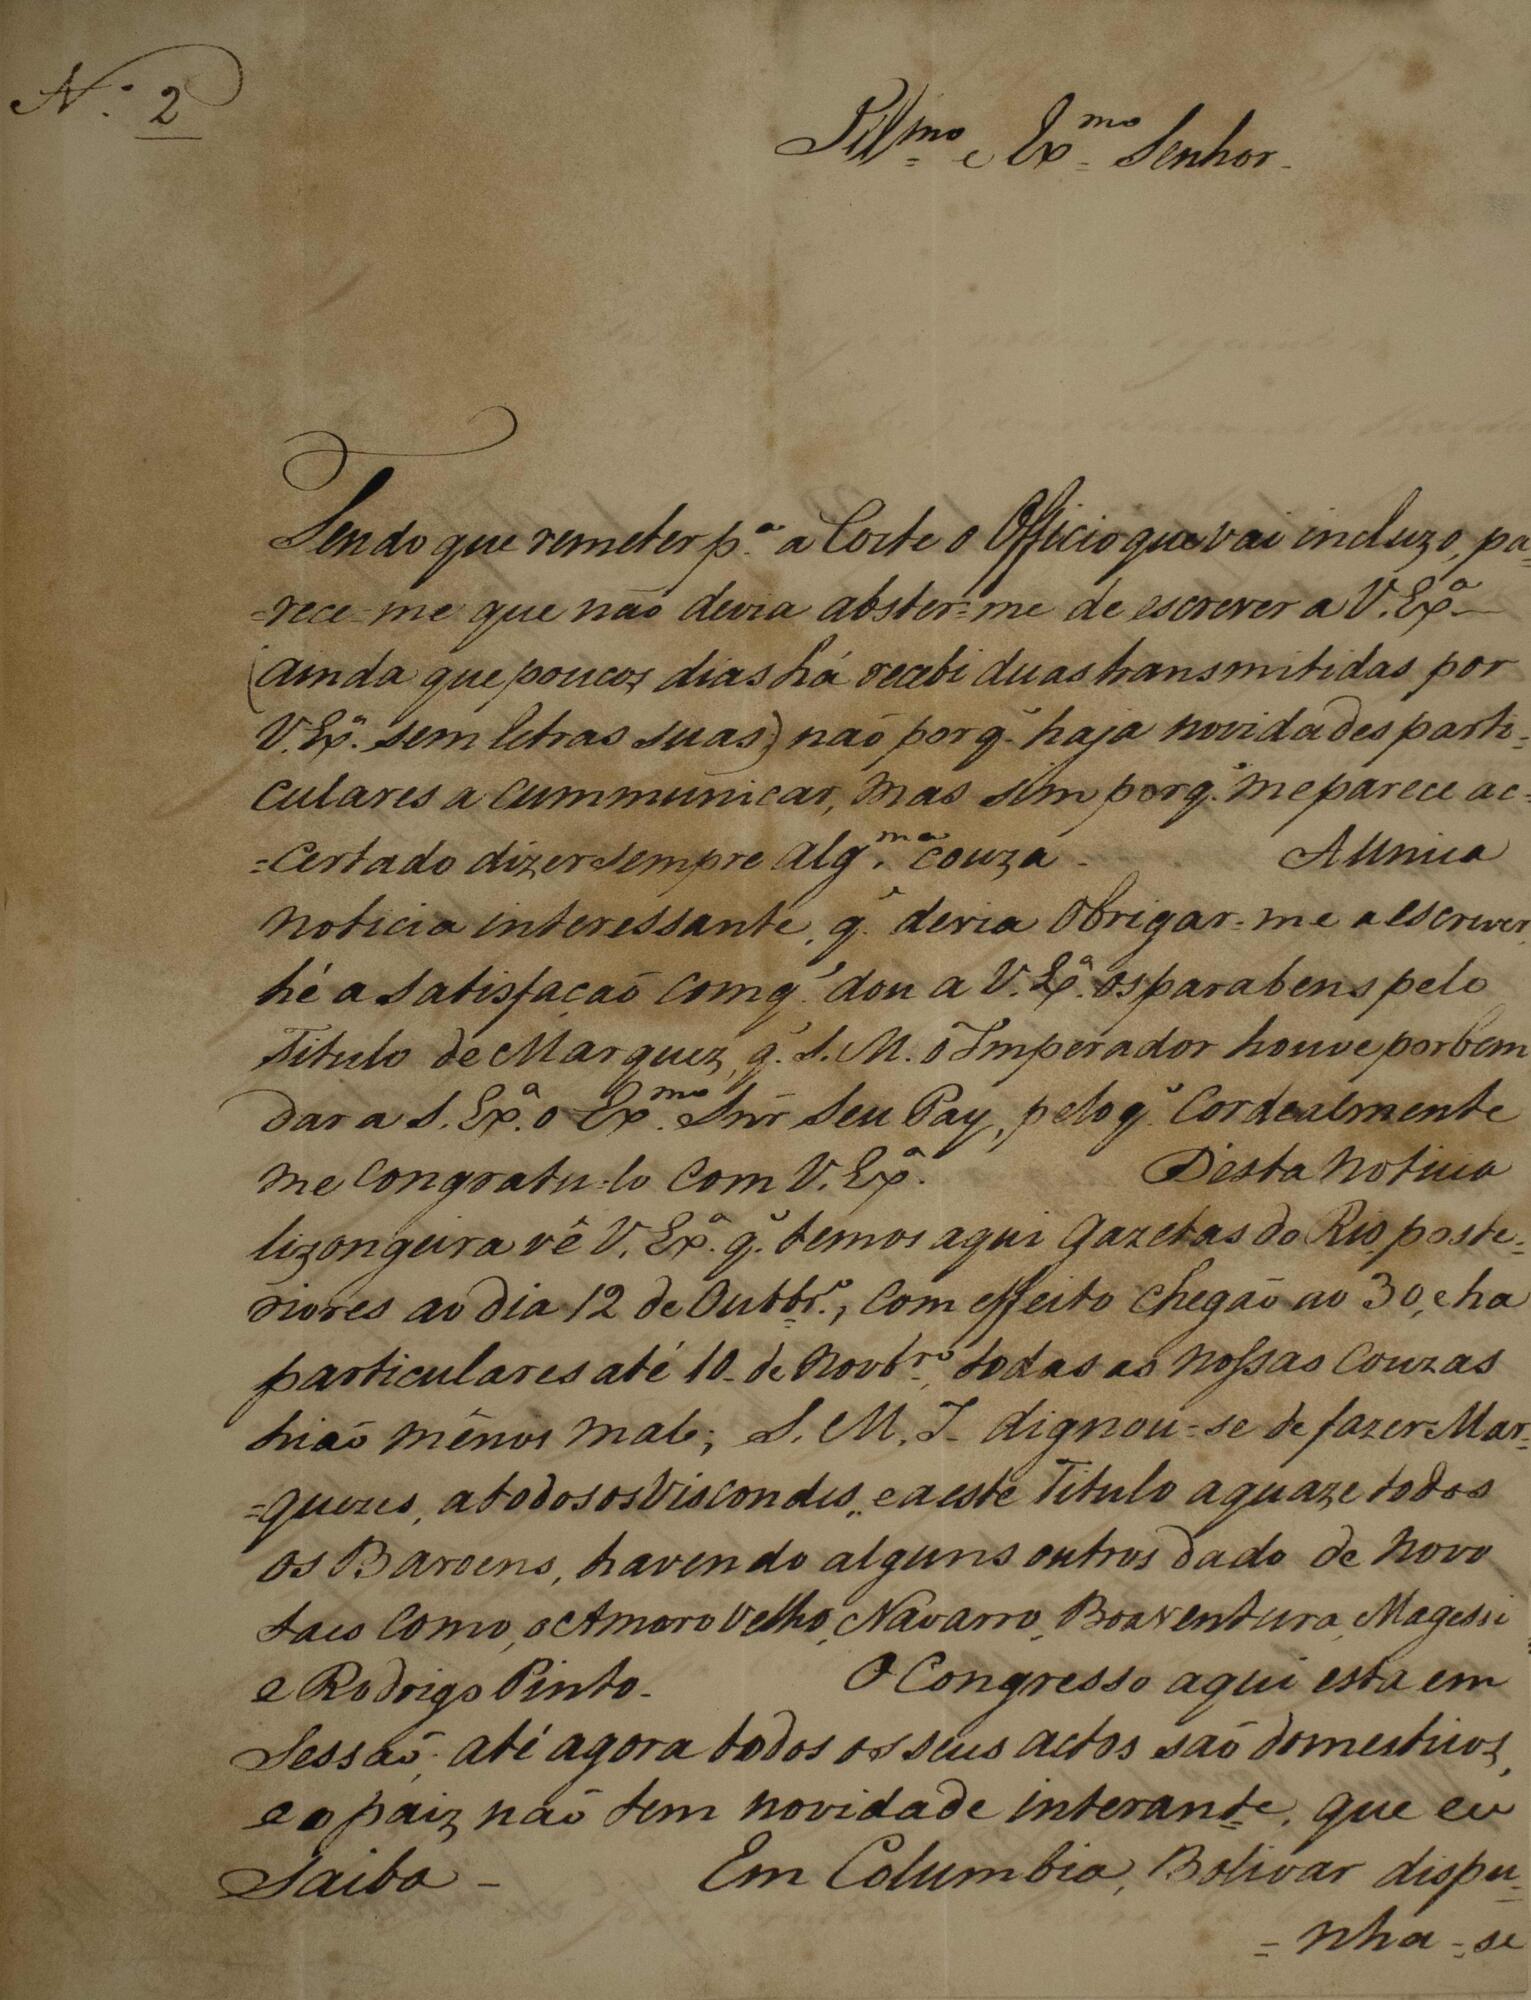 N.º 2
Ill.mo e Ex.mo Senhor.
Tendo que remeter p.ª a Corte o Officio que vai incluzo, pa-
-rece-me que não devia abster=me de escrever a V. Ex.ª
(ainda que poucos dias há recebi duas transmitidas por
V. Ex.ª sem letras suas) não porq.' haja novidades parti-
culares a cummunicar, mas sim porq.' me parece ac-
=certado dizer sempre alg.ma couza. A unica
noticia interessante, q.' devia obrigar=me a escrever,
hé a satisfação com q.' dou a V. Ex.ª os parabens pelo
Titulo de Marquez, q.' S. M. o Imperador houve por bem
dar a S. Ex.ª o Ex.mo Snr̃ seu Pay, pelo q.' cordealmente
me congratu-lo com V. Ex.ª Desta noticia
lizongeira vê V. Ex.ª q.' temos aqui gazetas do Rio poste=
riores ao dia 12 de Outbr.º, com effeito chegão ao 30, e ha
particulares até 10 de Novbr.º, todas as nossas couzas
hião mênos mal; S. M. I. dignou=se de fazer Mar=
=quezes, a todos os Viscondes, e a este Titulo a quaze todos
os Baroens, havendo alguns outros dado de novo
taes como, o Amaro Velho, Navarro, Boaventura, Magessi
e Rodrigo Pinto. O Congresso aqui esta em
Sessão, até agora todos os seus actos são domesticos,
e o paiz não tem novidade interante, que eu
Saiba - Em Columbia, Bolivar dispu=
=nha=se